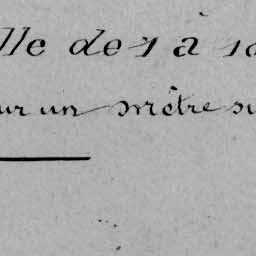 lle de 1 à 10
ur un mètre su